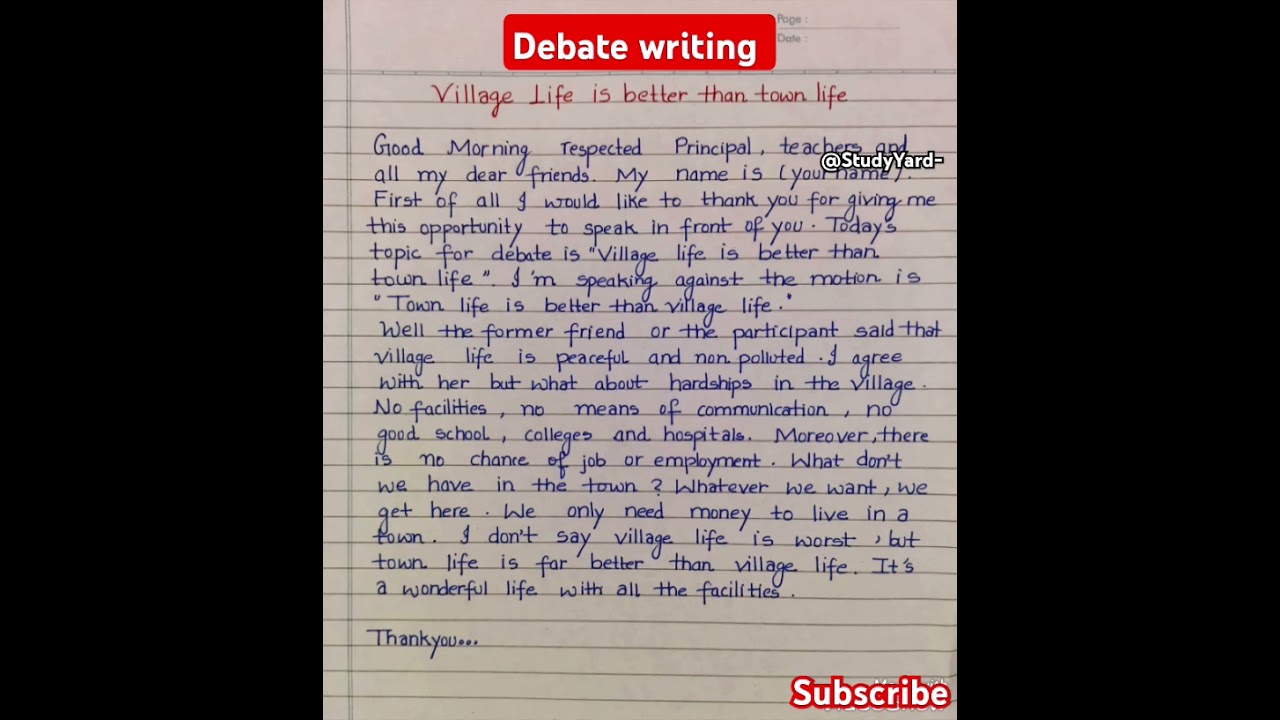 Page :
Date :
Debate writing
Village Life is better than town life
Good Morning respected Principal, teachers and
@StudyYard-
all my dear friends. My name is (your name).
First of all I would like to thank you for giving me
this opportunity to speak in front of you. Today's
topic for debate is "Village life is better than
town life". I'm speaking against the motion is
"Town life is better than village life."
Well the former friend or the participant said that
village life is peaceful and non polluted. I agree
with her but what about hardships in the village.
No facilities, no means of communication, no
good school, colleges and hospitals. Moreover, there
is no chance of job or employment. What don't
we have in the town? Whatever we want, we
get here. We only need money to live in a
town. I don't say village life is worst, but
town life is far better than village life. It's
a wonderful life with all the facilities.
Thankyou...
Subscribe